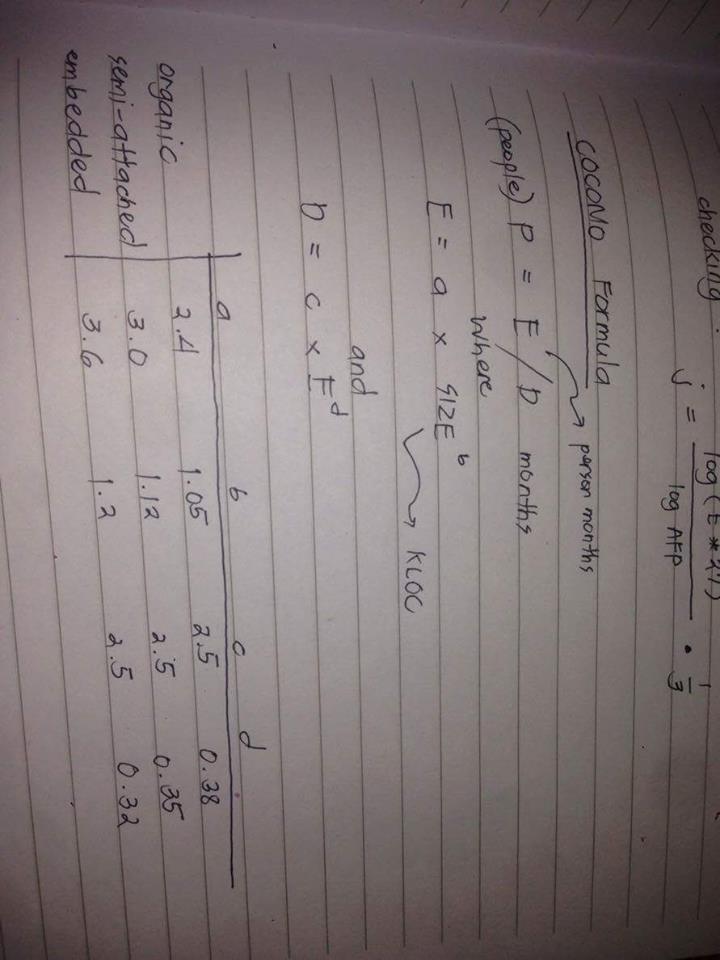 checking
log (E * 27)
j = ———— • 1/3
log AFP
COCOMO Formula
person months
(people) P = E / D months
Where
E = a x SIZE^b
KLOC
and
D = c x E^d
a b c d
organic 2.4 1.05 2.5 0.38
semi-attached 3.0 1.12 2.5 0.35
embedded 3.6 1.2 2.5 0.32